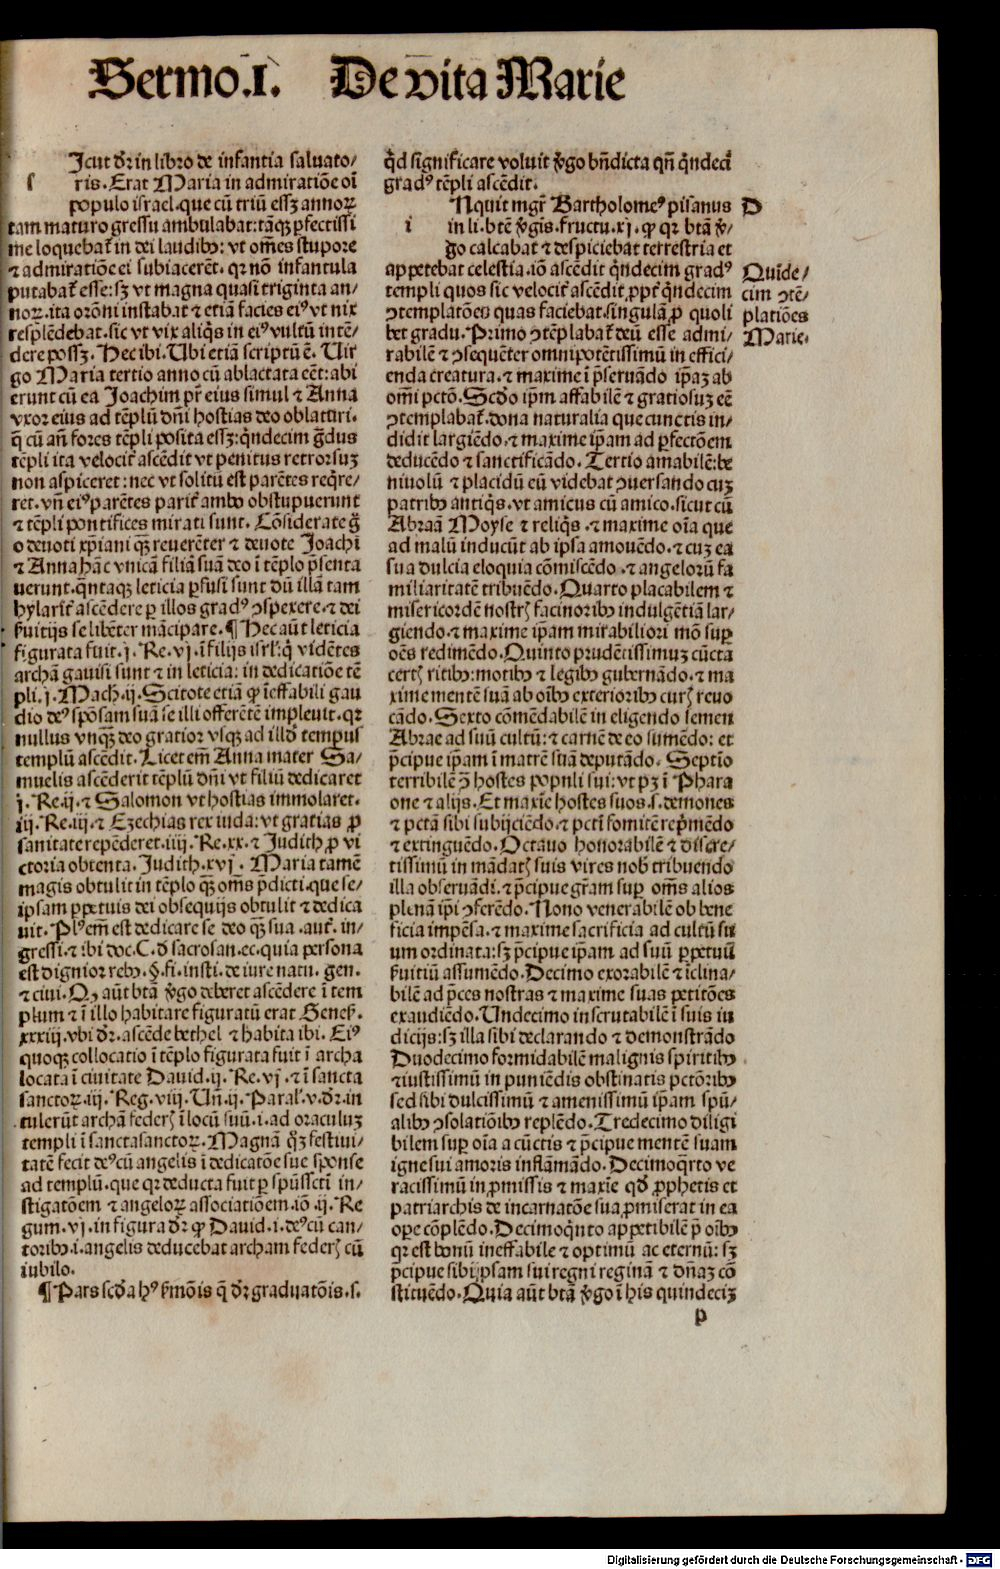 Sermo.I. De vita Marie
Icut dr̄ in libro de infantia saluato/
s ris. Erat Maria in admiratiōe oī
populo israel. que cū triū essꝫ annoꝝ
tam maturo gressu ambulabat: tāqꝫ ꝑfectissi
me loquebat̄ in dei laudibꝰ: vt oēs stupore
⁊ admiratiōe ei subiacerēt. qꝛ nō infantula
putabat̄ esse: sꝫ vt magna quasi triginta an-
noꝝ. ita orōni instabat ⁊ etiā facies eiꝰ vt nix
resplēdebat. sic vt vix aliq̄s in eiꝰ vultū intē-
dere possꝫ. Hec ibi. Ubi etiā scriptū ē. Uir
go Maria tertio anno cū ablactata eēt: abi
erunt cū ea Joachim pr̄ eius simul ⁊ Anna
vxor eius ad tēplū dn̄i hostias deo oblaturi.
q̄ cū an̄ fores tēpli posita essꝫ: q̄ndecim ḡdus
tēpli ita velocit̄ ascēdit vt penitus retrorsuꝫ
non aspiceret: nec vt solitū est parētes reqͥre/
ret. vn̄ eiꝰ parētes parit̄ ambo obstupuerunt
⁊ tēpli pontifices mirati sunt. Cōsiderate g̊
o deuoti xp̄iani qꝫ reuerēter ⁊ deuote Joachī
⁊ Anna hāc vnicā filiā suā deo ī tēplo p̄senta
uerunt. q̄ntaqꝫ leticia ꝑfusi sunt dū illā tam
hylarit̄ ascēdere ꝑ illos gradꝰ ꝯspexere. ⁊ dei
ẜuitijs se libēter mācipare. ¶ Hec aūt leticia
figurata fuit. j. Re. vj. ī filijs isrl̄: q̄ vidētes
archā gauisi sunt ⁊ in leticia: in dedicatiōe tē
pli. j. Mach. ij. Scitote etiā ꝙ īeffabili gau
dio deꝰ spōsam suā se illi offerētē impleuit. qꝛ
nullus vnqꝫ deo gratior vsqꝫ ad illd̄ tempus
templū ascēdit. Licet em̄ Anna mater Sa-
muelis ascēderit tēplū dn̄i vt filiū dedicaret
j. Re. ij. ⁊ Salomon vt hostias immolaret.
iij. Re. iij. ⁊ Ezechias rex iuda: vt gratias ꝓ
sanitate repēderet. iiij. Re. xx. ⁊ Judith ꝓ vi
ctoria obtenta. Judith. xvj. Maria tamē
magis obtulit in tēplo qꝫ om̄s p̄dicti. que se/
ipsam ꝑpetuis dei obsequijs obtulit ⁊ dedica
uit. Plꝰ em̄ est dedicare se deo qꝫ sua. aut̄. in-
gressi. ⁊ ibi doc. C. d̄ sacrosan. ec. quia persona
est dignior rebꝰ. §. fi. insti. de iure natu. gen.
⁊ ciui. Qꝫ aūt btā v̄go deberet ascēdere ī tem
plum ⁊ ī illo habitare figuratū erat Geneẜ.
xxxiij. vbi dr̄. ascēde bethel ⁊ habita ibi. Eiꝰ
quoqꝫ collocatio ī tēplo figurata fuit ī archa
locata ī ciuitate Dauid. ij. Re. vj. ⁊ ī sancta
sanctoꝝ. iij. Reg. viij. Un̄. ij. Paral̄. v. dr̄. in
tulerūt archā federꝭ ī locū suū. i. ad oraculuꝫ
templi ī sanctasanctoꝝ. Magnā qꝫ festiui/
tatē fecit deꝰ cū angelis ī dedicatōe sue sponse
ad templū. que qꝛ deducta fuit ꝑ spūssctī in/
stigatōem ⁊ angeloꝝ associatiōem. iō. ij. Re
gum. vj. in figura dr̄ ꝙ Dauid. i. deꝰ cū can/
toribꝰ. i. angelis deducebat archam federꝭ cū
iubilo.
¶ Pars scd̄a hꝰ ẜmōis q̄ dr̄ graduatōis. s.
qd̄ significare voluit v̄go bn̄dicta qn̄ q̄ndecī
gradꝰ tēpli ascēdit.
Nquit mgr̄ Bartholomeꝰ pisanus D
i in li. btē v̄gis. fructu. xj. ꝙ qꝛ btā v̄/
go calcabat ⁊ despiciebat terrestria et
appetebat celestia. iō ascēdit q̄ndecim gradꝰ
templi quos sic velocit̄ ascēdit ꝓpt̄ q̄ndecim
ꝯtemplatōes quas faciebat. singulā ꝓ quoli
bet gradu. Primo ꝯtēplabat̄ deū esse admi/
rabilē ⁊ ꝯsequēter omnipotētissimū in effici/
enda creatura. ⁊ maxime ī p̄seruādo ip̄aꝫ ab
om̄i pctō. Scd̄o ip̄m affabilē ⁊ gratiosuꝫ eē
ꝯtemplabat̄. dona naturalia que cunctis in/
didit largiēdo. ⁊ maxime ip̄am ad ꝑfectōem
deducēdo ⁊ sanctificādo. Tertio amabilē: be
niuolū ⁊ placidū eū videbat ꝯuersando cuꝫ
patribꝰ antiq̄s. vt amicus cū amico. sicut cū
Abraā Moyse ⁊ reliq̄s. ⁊ maxime oīa que
ad malū inducūt ab ipsa amouēdo. ⁊ cuꝫ ea
sua dulcia eloquia cōmiscēdo. ⁊ angeloꝝ fa
miliaritatē tribuēdo. Quarto placabilem ⁊
misericordē nostrꝭ facinoribꝰ indulgētiā lar/
giendo. ⁊ maxime ip̄am mirabiliori mō suꝑ
oēs redimēdo. Quinto prudētissimuꝫ cūcta
certꝭ ritibꝰ: motibꝰ ⁊ legibꝰ gubernādo. ⁊ ma
xime mentē suā ab oībꝰ exterioribꝰ curꝭ reuo
cādo. Sexto cōmēdabilē in eligendo semen
Abrae ad suū cultū: ⁊ carnē de eo sumēdo: et
p̄cipue ip̄am ī matrē suā deputādo. Septio
terribilē ꝯ̄ hostes populi sui: vt pꝫ ī Phara
one ⁊ alijs. Et maxīe hostes suos. s. demones
⁊ pctā sibi subijciēdo. ⁊ pctī fomitē rep̄mēdo
⁊ extinguēdo. Octauo honorabilē ⁊ discre/
tissimū in mādatꝭ suis vires nob̄ tribuendo
illa obseruādi. ⁊ p̄cipue gr̄am suꝑ om̄s alios
plenā ip̄i ꝯferēdo. Nono venerabilē ob bene
ficia impēsa. ⁊ maxime sacrificia ad cultū su
um ordinata: sꝫ p̄cipue ip̄am ad suū ꝑpetuū
ẜuitiū assumēdo. Decimo exorabilē ⁊ īclina/
bilē ad p̄ces nostras ⁊ maxime suas petitōes
exaudiēdo. Undecimo inscrutabilē ī suis iu
dicijs: sꝫ illa sibi declarando ⁊ demonstrādo
Duodecimo formidabilē malignis spiritibꝰ
⁊ iustissimū in puniēdis obstinatis pctōribꝰ
sed sibi dulcissimū ⁊ amenissimū ip̄am spū/
alibꝰ ꝯsolatiōibꝰ replēdo. Tredecimo diligi
bilem suꝑ oīa a cūctis ⁊ p̄cipue mentē suam
igne sui amoris inflāmādo. Decimoqͣrto ve
racissimū in ꝓmissis ⁊ maxīe qd̄ ꝓphetis et
patriarchis de incarnatōe sua ꝓmiserat in ea
oꝑe cōplēdo. Decimoqͥnto appetibilē p̄ oībꝰ
qꝛ est bonū ineffabile ⁊ optimū ac eternū: sꝫ
p̄cipue sibijpsam sui regni reginā ⁊ dn̄aꝫ cō
stituēdo. Quia aūt btā v̄go ī his quindeciꝫ
p
Quīde/
cim ꝯtē-
platiōes
Marie.
Digitalisierung gefördert durch die Deutsche Forschungsgemeinschaft - DFG